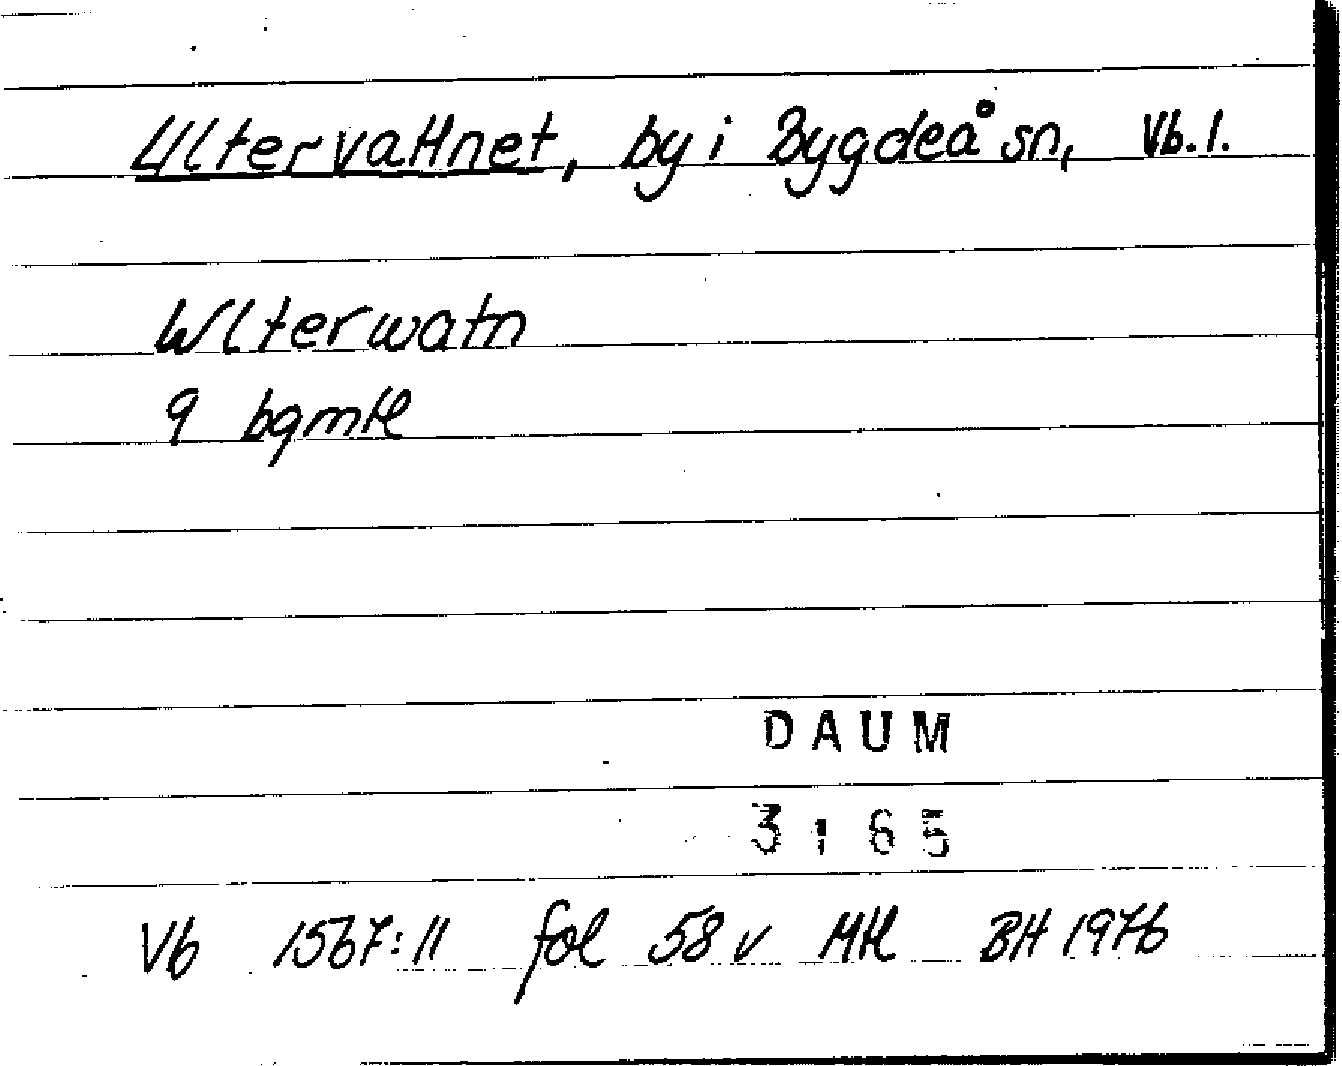 Ultervattnet, by i Bygdeå sn, Vb.l.
Wlterwatn
9 bgmtl
DAUM
3:65
Vb 1567:11 fol 58 v Mtl BH 1976